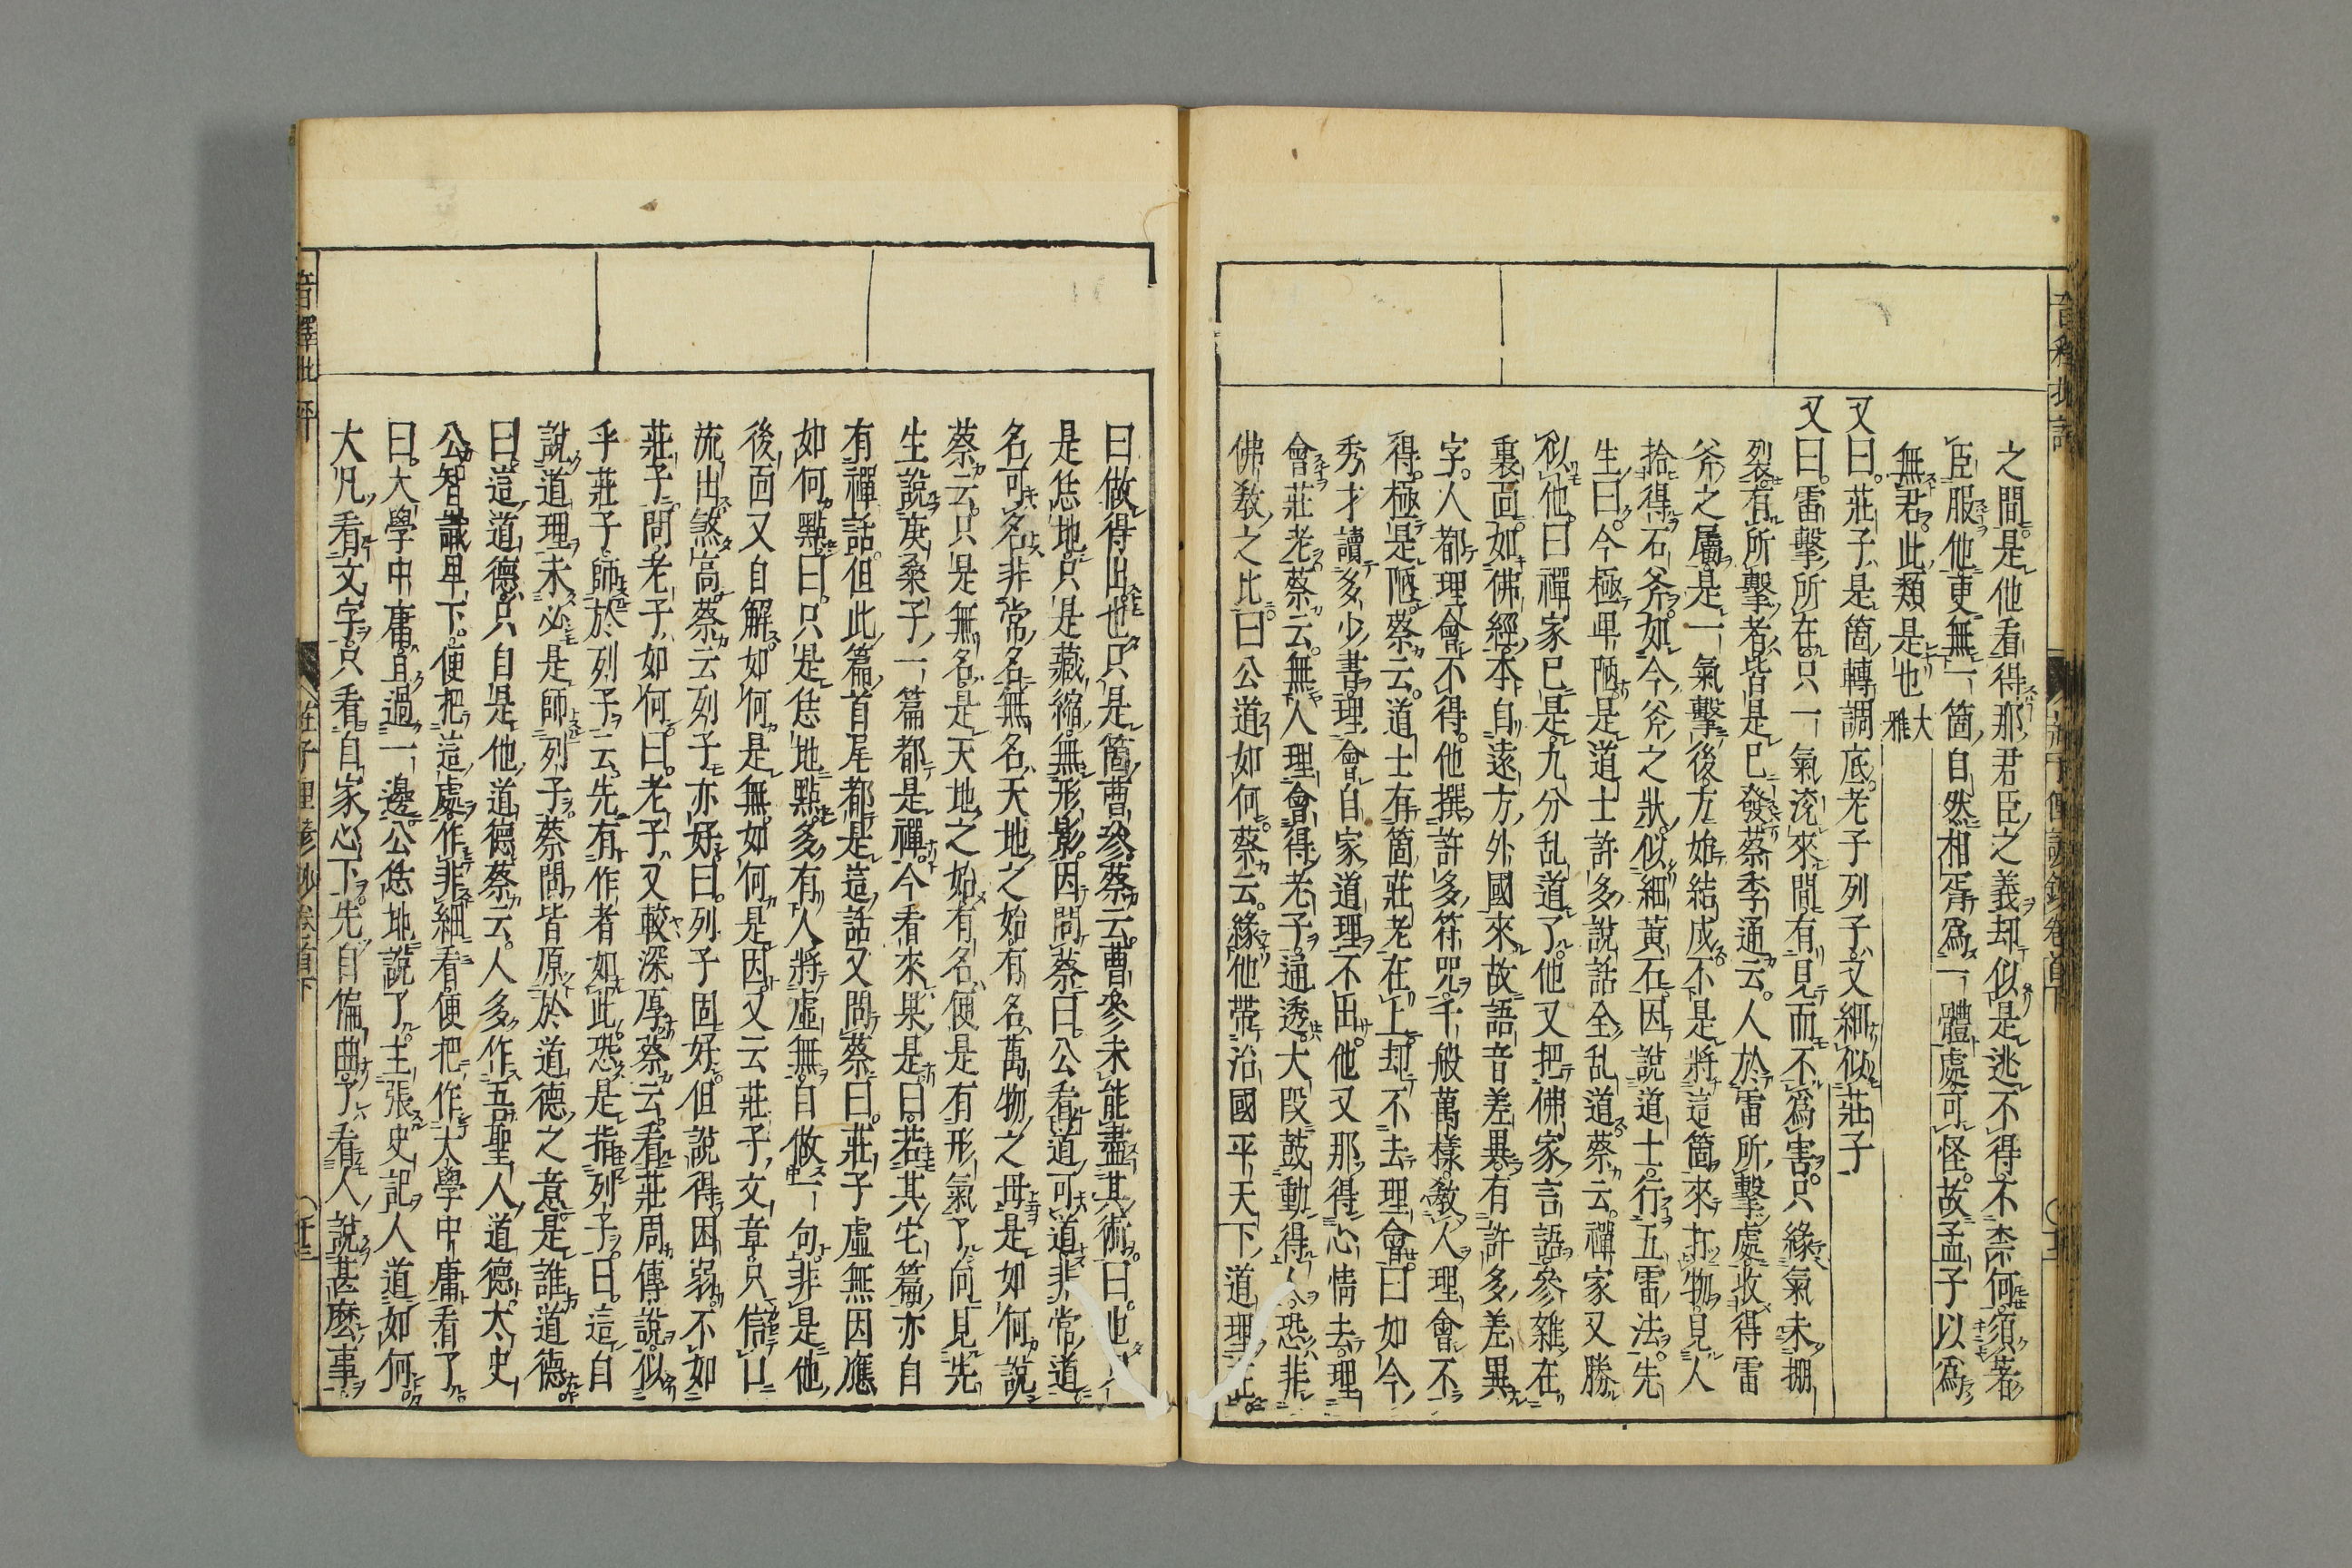 之間是他看得那君臣之義却似是逃不得不柰何須著
臣服他更無一箇自然相胥爲一體處可怪故孟子以爲
無君此類是也大雅
又曰莊子是箇轉調底老子列子文細似莊子
又曰雷擊所在只一氣滾來間有見而不爲害只緣氣未掤
裂有所擊者皆是已發蔡季通云人於雷所擊處收得雷
斧之屬是一氣擊後方始結成不是將這箇來打物見人
拾得石斧如今斧之狀似細黃石因說道士行五雷法先
生曰今極卑陋是道士許多說話全乱道蔡云禪家又勝
似他曰禪家已是九分乱道了他又把佛家言語參雜在
裏面如佛經本自遠方外國來故語音差異有許多差異
字人都理會不得他撰許多符咒千般萬樣敎人理會不
得極是陋蔡云道士有箇莊老在上却不去理會曰如今
秀才讀多少書理會自家道理不出他又那得心情去理
會莊老蔡云無人理會得老子通透大段鼓動得人恐非
佛敎之比曰公道如何蔡云緣他帶治國平天下道理在
曰做得出也只是箇曹參蔡云曹參未能盡其術曰也
是恁地只是藏縮無形影因問蔡曰公看道可道非常道
名可名非常名無名天地之始有名萬物之母是如何說
蔡云只是無名是天地之始有名便是有形氣了向見先
生說庚桑子一篇都是禪今看來果是曰若其它篇亦自
有禪話但此篇首尾都是這話又問蔡曰莊子虛無因應
如何點曰只是恁地點多有人將虛無自做一句非是他
後面又自解如何是無如何是因又云莊子文章只信口
流出煞高蔡云列子亦好曰列子固好但說得困弱不如
莊子問老子如何曰老子又較深厚蔡云看莊周傳說似
乎莊子師於列子云先有作者如此恐是指列子曰這自
說道理未必是師列子蔡問皆原於道德之意是誰道德
曰這道德只自是他道德蔡云人多作吾聖人道德太史
公智識卑下便把這處作非細看便把作大學中庸看了
曰大學中庸且過一邊公恁地說了主張史記人道如何
大凡看文字只看自家心下先自偏曲了看人說甚麼事